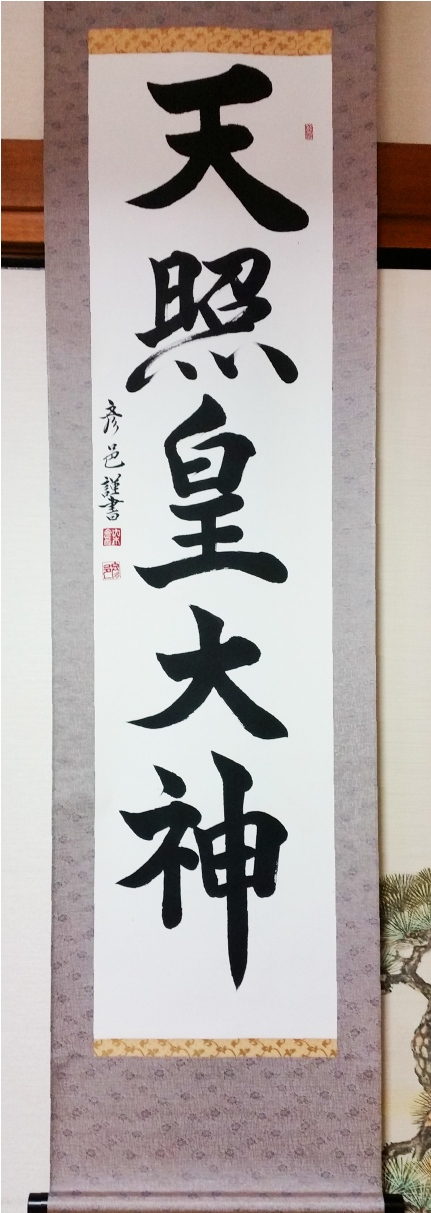 天照皇大神
彦邑謹書